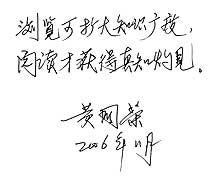 浏览可扩大知识广度，
阅读才获得真知灼见。
黄炯荣
2006年11月